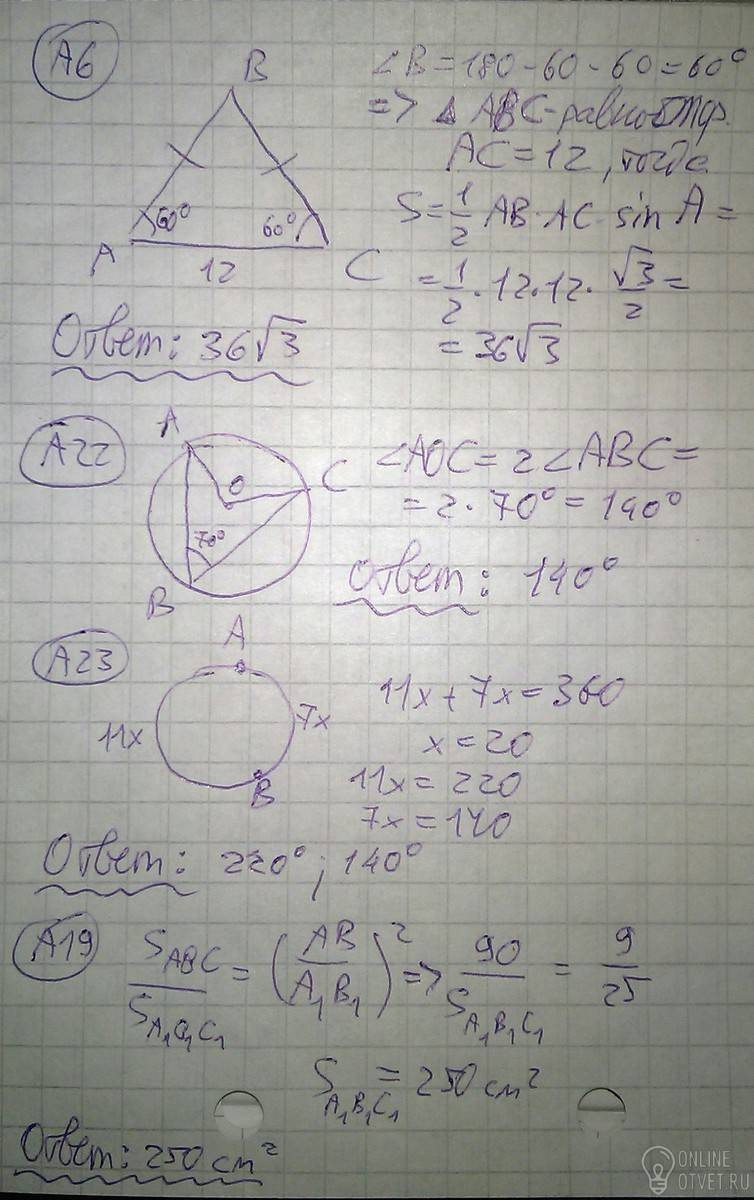 А6
B
60° 60°
A C
12
∠B = 180 - 60 - 60 = 60°
=> △ ABC - равностор.
AC = 12, тогда
S = 1/2 AB · AC · sin A =
= 1/2 · 12 · 12 · √3/2 =
= 36√3
Ответ: 36√3
А22
A
O C
70°
B
∠AOC = 2∠ABC =
= 2 · 70° = 140°
Ответ: 140°
А23
A
11x 7x
B
11x + 7x = 360
x = 20
11x = 220
7x = 140
Ответ: 220° ; 140°
А19
S_ABC / S_A₁B₁C₁ = (AB / A₁B₁)² => 90 / S_A₁B₁C₁ = 9/25
S_A₁B₁C₁ = 250 см²
Ответ: 250 см²
ONLINE
OTVET.RU